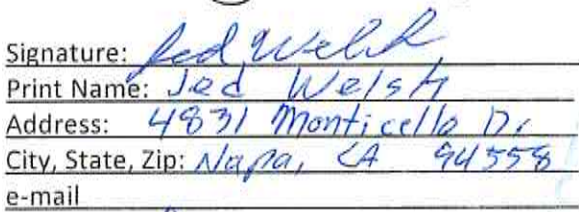 Signature: Jed Welsh
Print Name: Jed Welsh
Address: 4831 Monticello Dr
City, State, Zip: Napa, CA 94558
e-mail